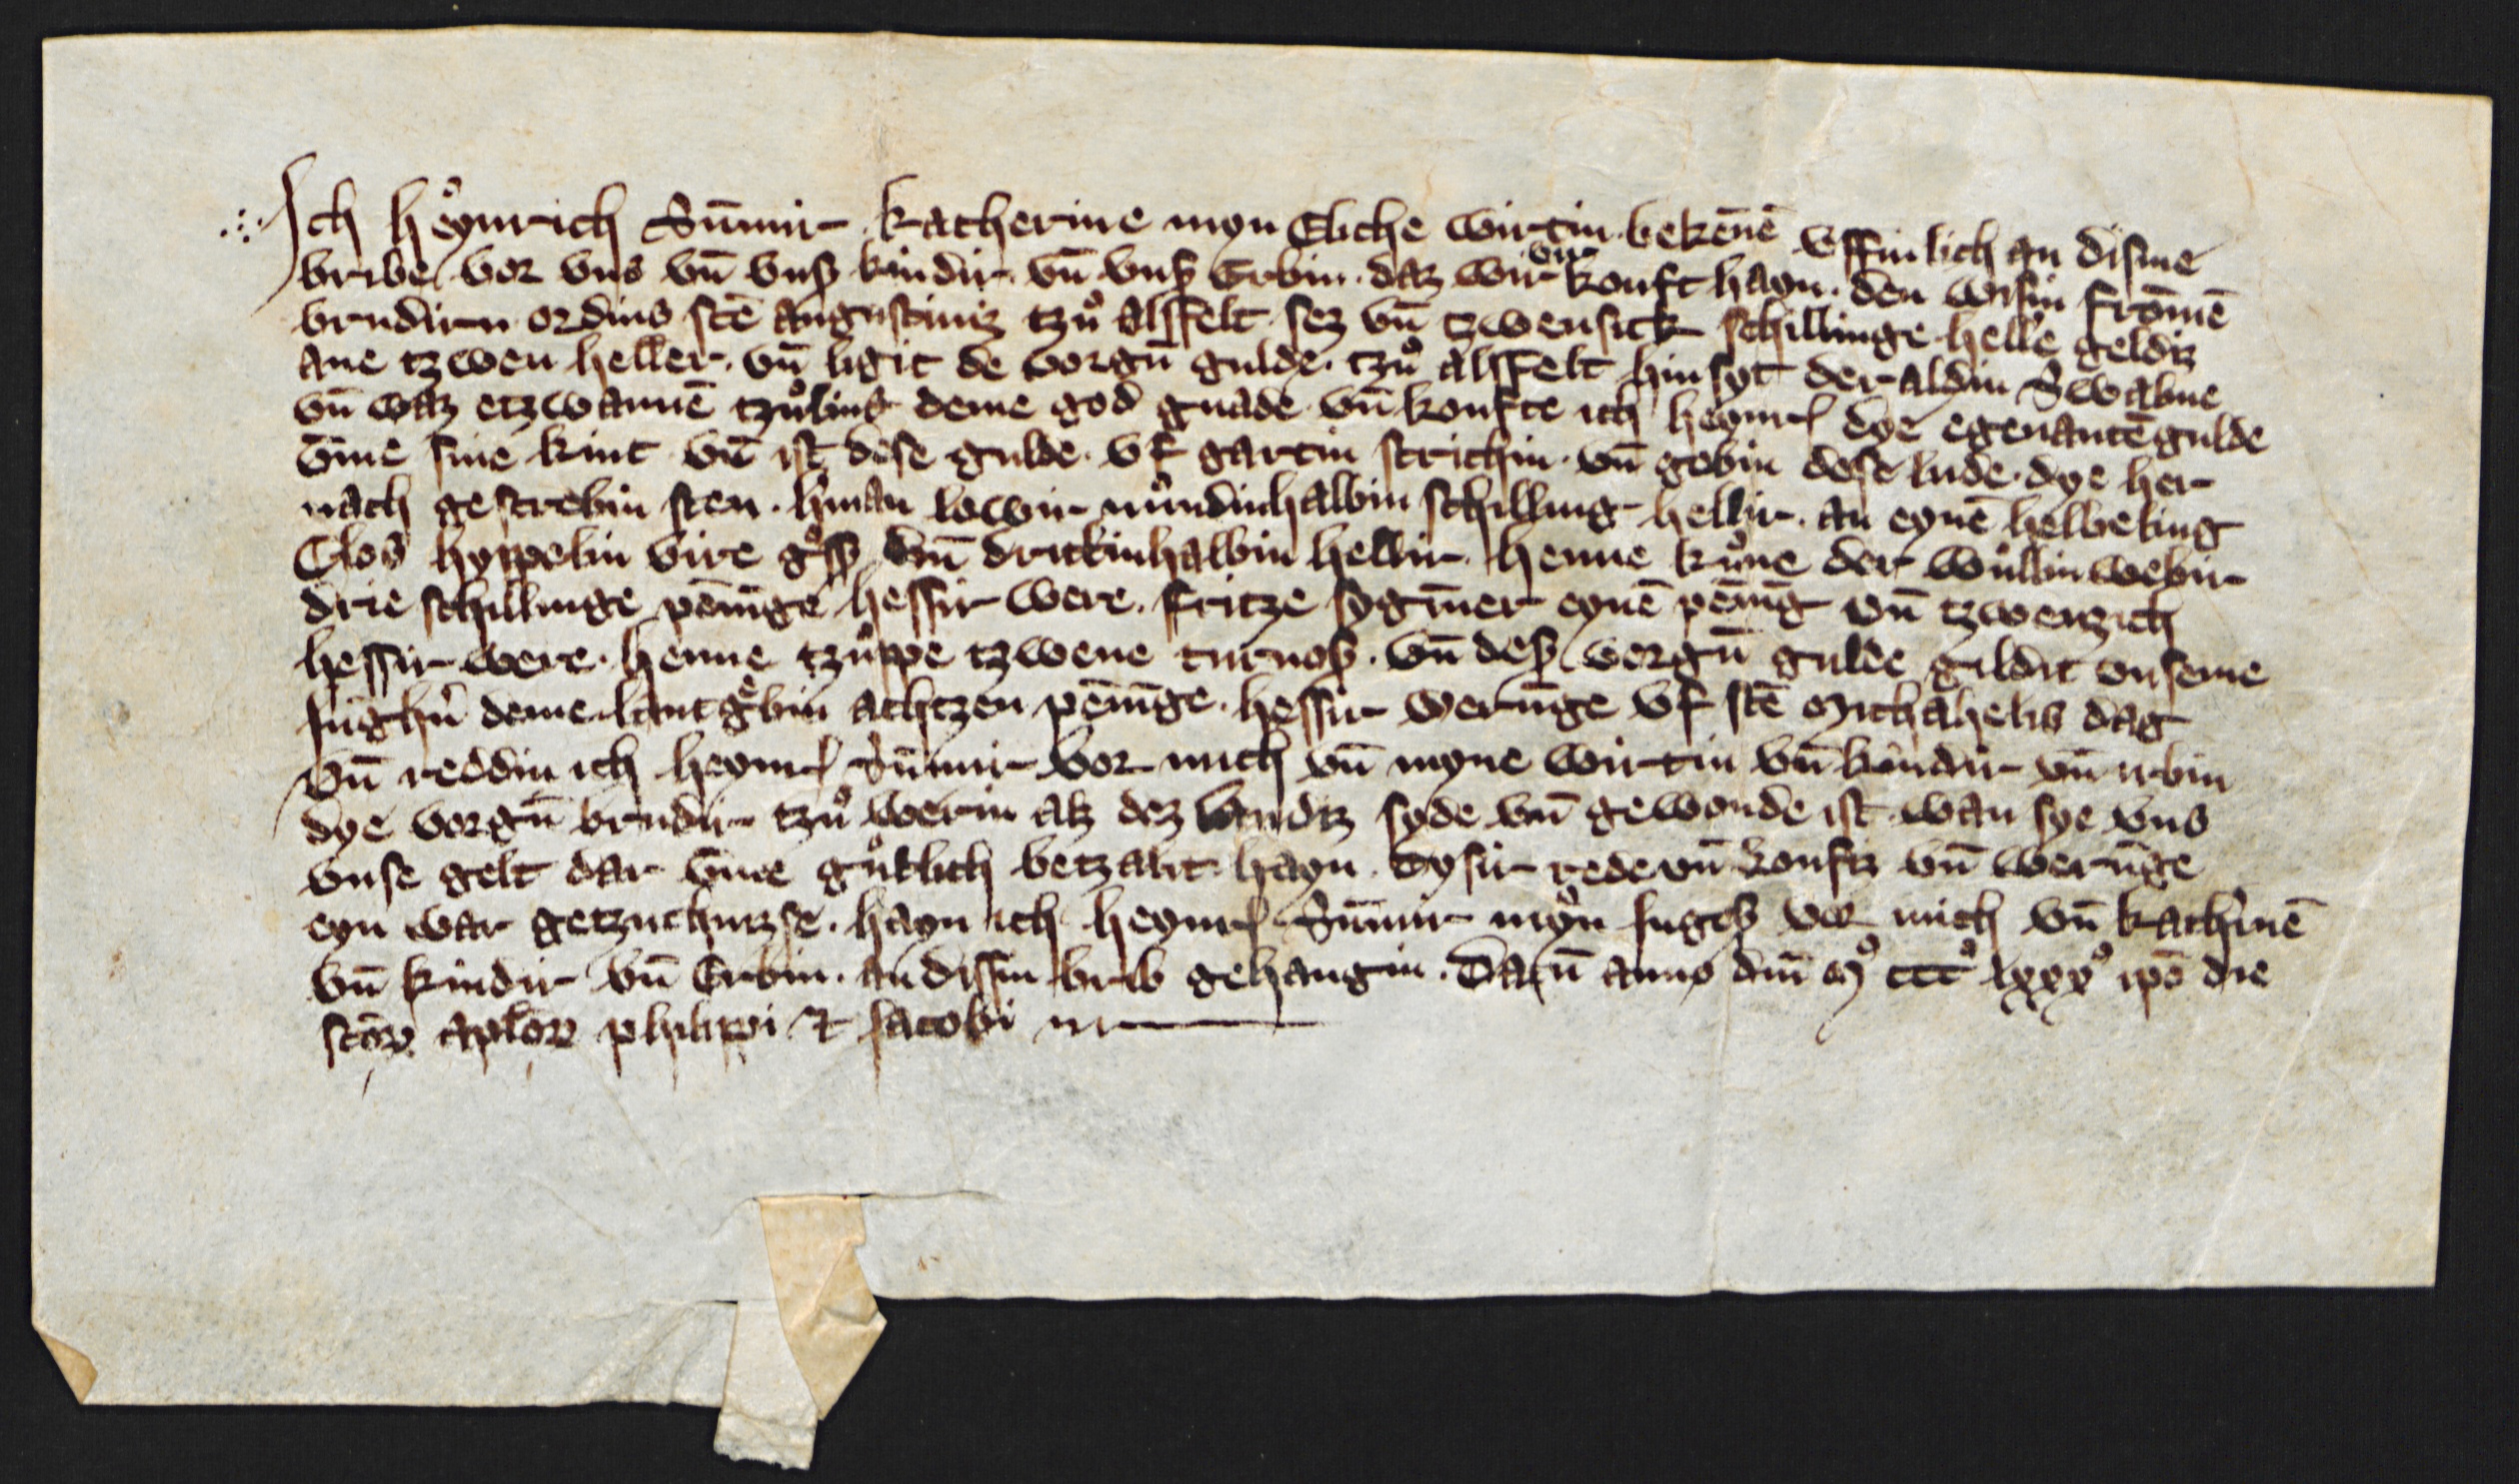 Ich heͦynrich Sūmir katherine myn Eliche wirtin bekēnē vffinlich an disme
bribe vor vns vn̄ vnß kindir vn̄ vnß Erbin daz wir vir kouft hayn den wisin frōmē
brudirn ordins stē augustiniz tzuͦ alsfelt sez vn̄ tzwensick schillinge helle geldiz
ane tzwen heller vn̄ ligit de vorgn̄ gulde tzuͦ alsfelt hinsyt der aldin Swabne
vn̄ waz etzwannē tzuͦling deme god gnade vn̄ koufte ich heynr dye egenantē gulde
vm̄e sine kint vn̄ ist dese gulde vf gartin strichin vn̄ gebin dese lude dye her
nach gescrebin sten hman lowir nundinhalbin schilling hellir an eynē helbeling
Clos hyppelin vire gͦss vn̄ drittinhalbin hellir henne kuͦne der wullin webir
drie schillinge pēnīge hessir were fritze sygm̄er eynē pēnīg vn̄ tzwenzich
hessir were henne tzuͦppe tzwene turnoß vn̄ deß vorgn̄ gulde gildit vnseme
Jūghn̄ deme lantgͤbin achtzen pēnīge hessir werūge vf stē Michahelis dag
vn̄ reddin ich heynr Sūmir vor mich vn̄ myne wirtin vn̄ kindir vn̄ irbin
dye vorgn̄ brudir tzuͦ werin alz dez landiz syde vn̄ gewonde ist wan sye vns
vnse gelt dar vm̄e guͦtlich betzalit hayn Dysir rede vn̄ koufiz vn̄ werūge
eyn war getzuchnizse hayn ich heynr Sūmir myͦn Jngeß vor mich vn̄ kathinē
vn̄ kindir vn̄ Erbin an dissin brib gehangin Datū anno dn̄i Mͦ cccͦ lxxxͦ ipō die
stōꝝ aplōꝝ philippi et Jacobi